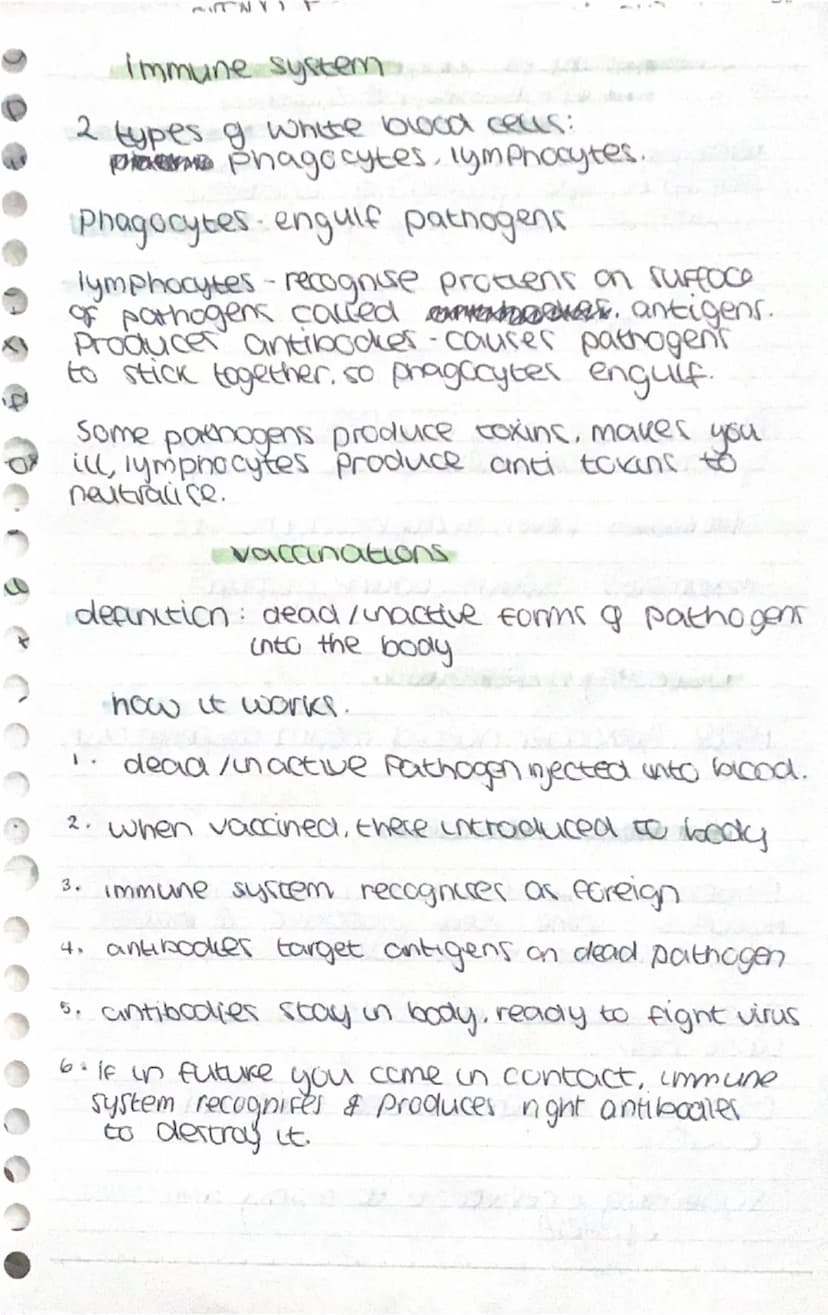 immune system
2 types of white blood cells:
phagocytes, lymphocytes.
Phagocytes - engulf pathogens
lymphocytes - recognise proteins on surface
of pathogens called antigens.
Produces antibodies - causes pathogens
to stick together, so phagocytes engulf.
Some pathogens produce toxins, makes you
ill, lymphocytes produce anti toxins to
neutralise.
vaccinations
definition: dead/inactive forms of pathogens
into the body
how it works.
1. dead/inactive Pathogen njected into blood.
2. when vaccined, these introduced to body
3. immune system recognises as foreign
4. antibodies target antigens on dead pathogen
5. antibodies stay in body, ready to fight virus
6. if in future you come in contact, immune
system recognises & produces right antibodies
to destroy it.